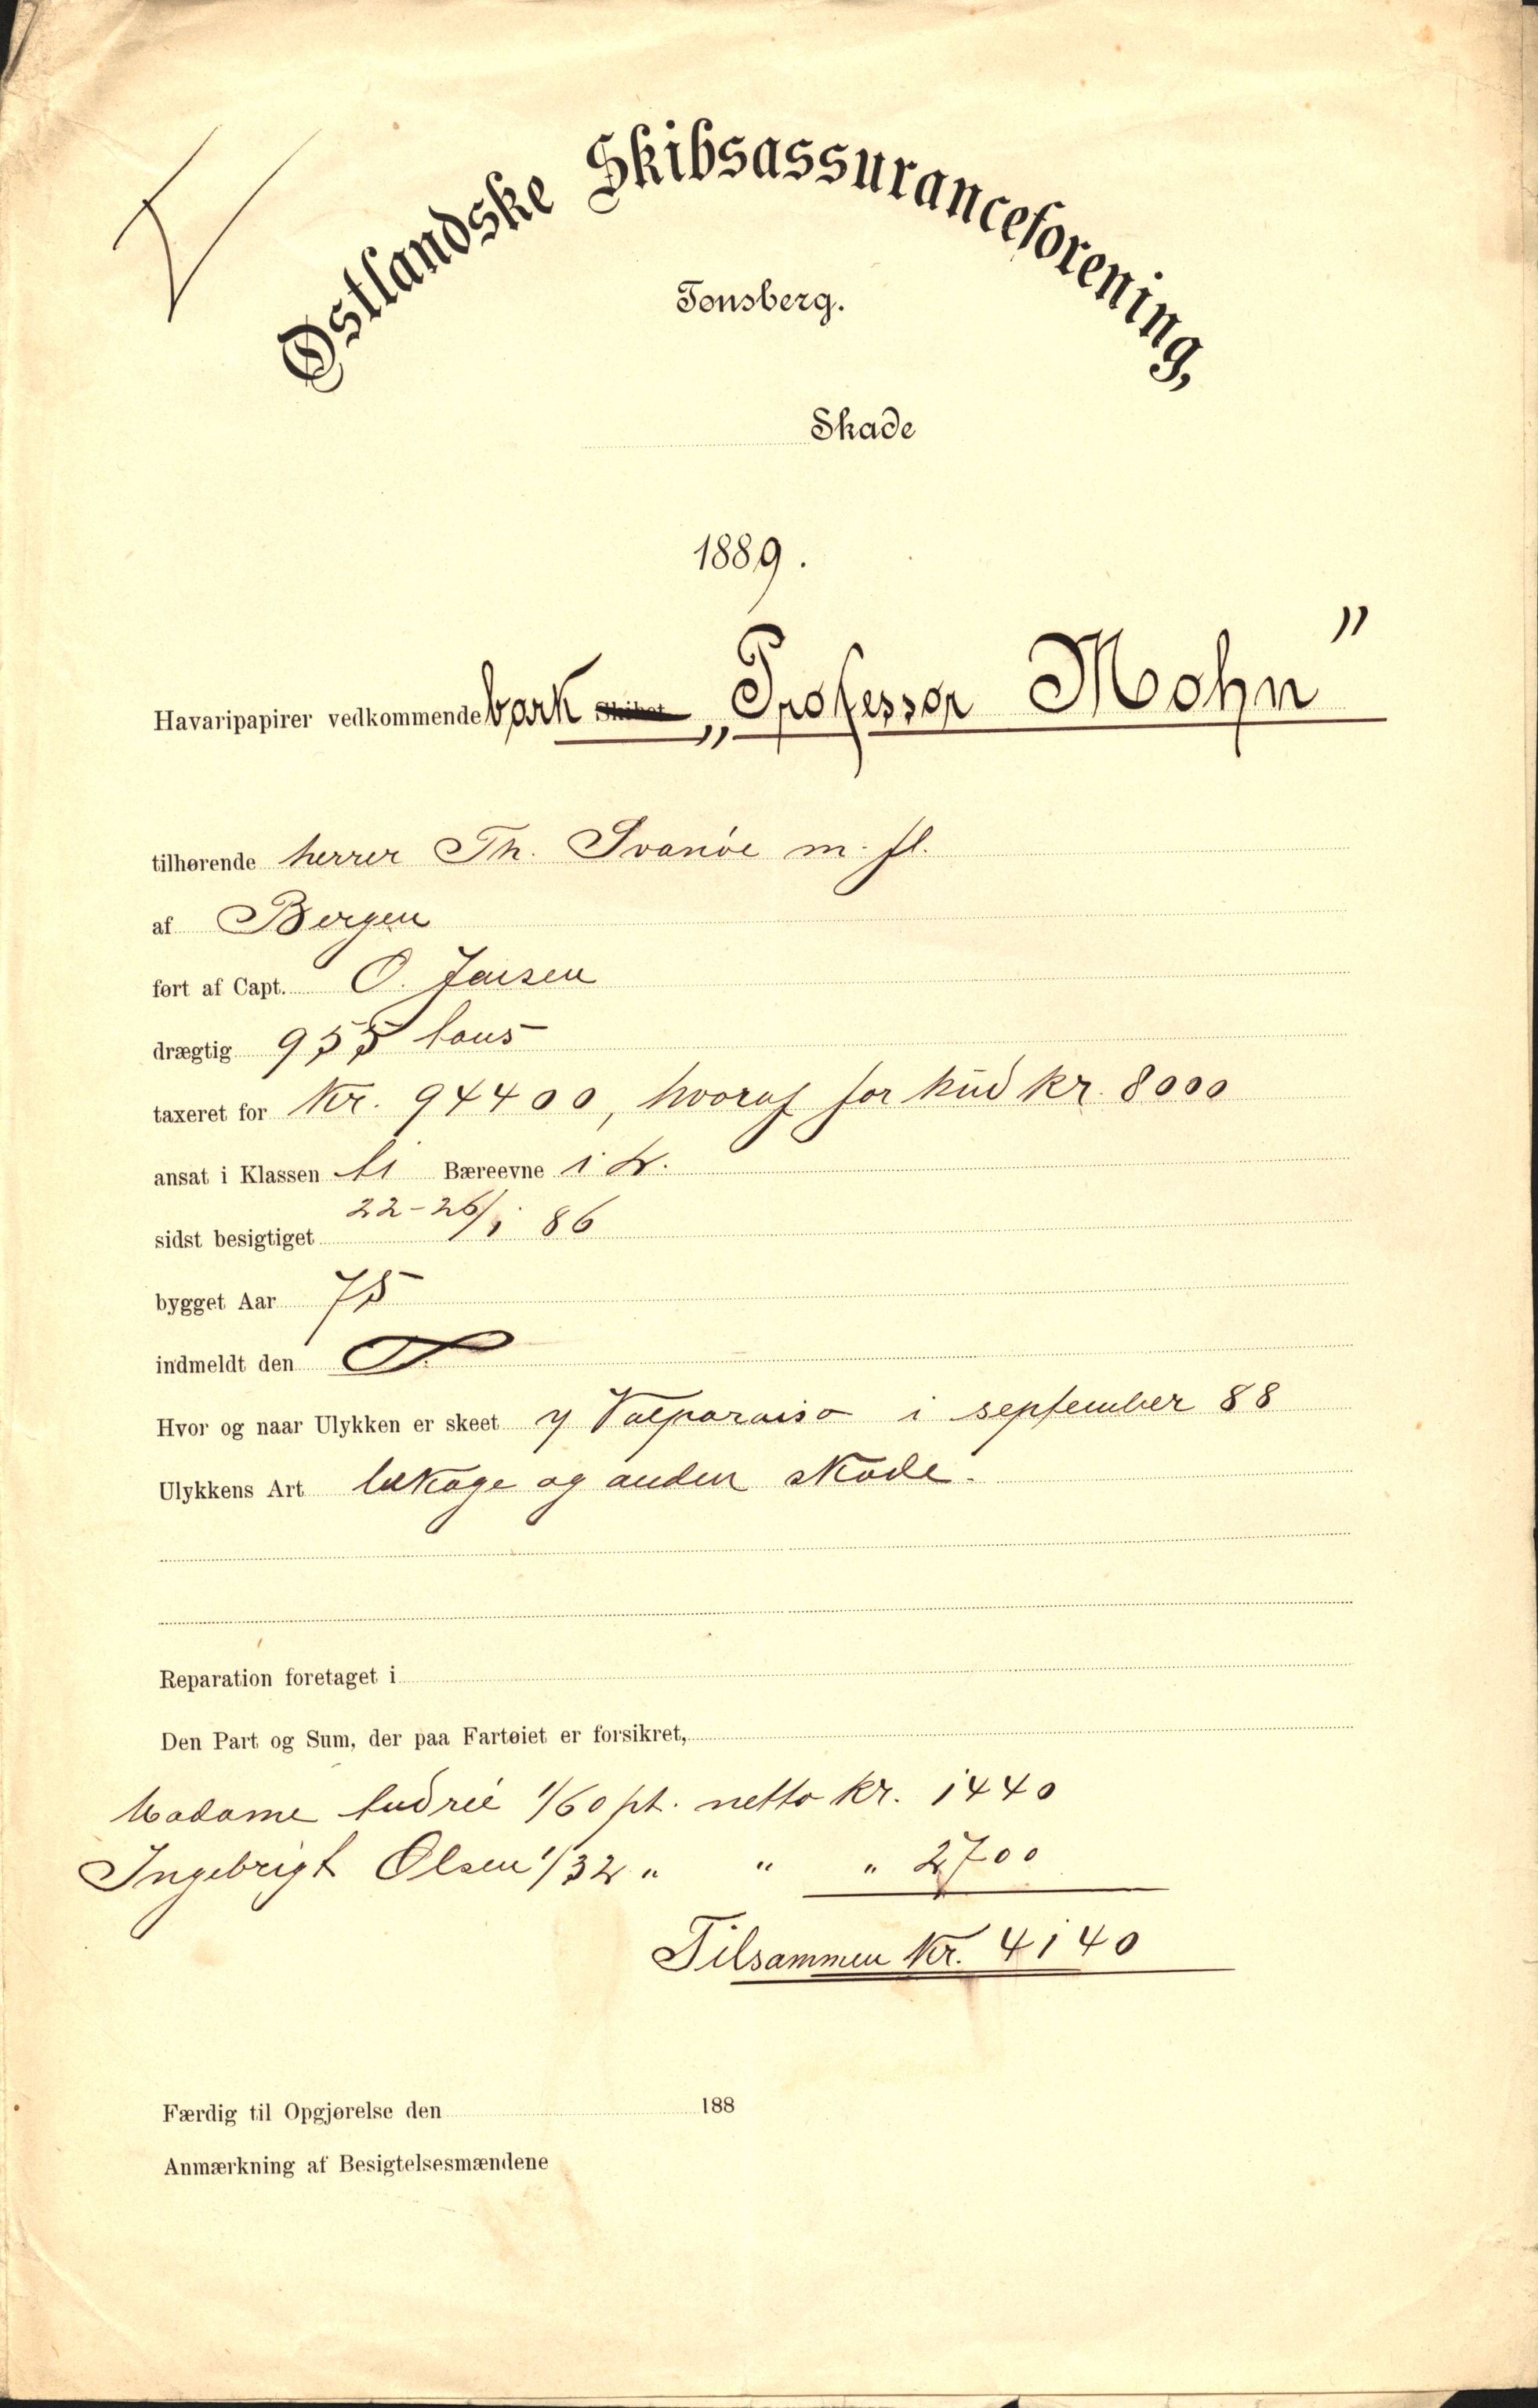 Østlandske Skibsassuranceforening,
Tønsberg.
Skade
1889.
Havaripapirer vedkommende bark Skibet „Professor Mohn”
tilhørende herrer Th. Svanöe m. fl.
af Bergen
ført af Capt. O. Jansen
drægtig 955 tons
taxeret for Kr. 94400, hvoraf for hud Kr. 8000
ansat i Klassen A1 Bæreevne
sidst besigtiget 22-26/1 86
bygget Aar 75
indmeldt den
Hvor og naar Ulykken er skeet Valparaiso i september 88
Ulykkens Art lækage og anden skade.
Reparation foretaget i
Den Part og Sum, der paa Fartøiet er forsikret,
Madame 1/60 pt. netto Kr. 1440
Ingebrigt Olsen 1/32 " " " 2700
Tilsammen Kr. 4140
Færdig til Opgjørelse den 188
Anmærkning af Besigtelsesmændene